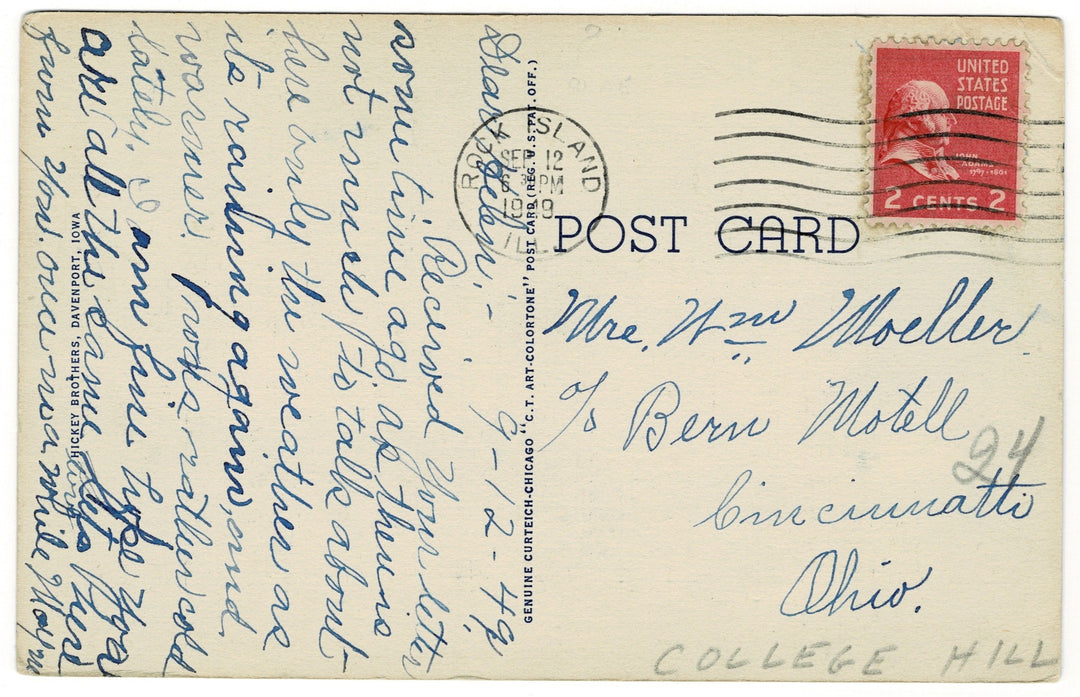 POST CARD
ROCK ISLAND
ILL.
SEP 12
PM
1949
UNITED
STATES
POSTAGE
JOHN
ADAMS
1797-1801
2 CENTS 2
Mrs. Wm Moeller
c/o Bern Motell
Cincinnatti
Ohio.
24
COLLEGE HILL
9-12-49
Dear
Received your letter
some time ago as there is
not much to talk about
here only the weather as
its raining again, and
warmer. rather cold
lately. I am fine hope you
are all the same. Lets hear
from you once in a while,
GENUINE CURTEICH-CHICAGO "C.T. ART-COLORTONE" POST CARD (REG. U.S. PAT. OFF.)
HICKEY BROTHERS, DAVENPORT, IOWA